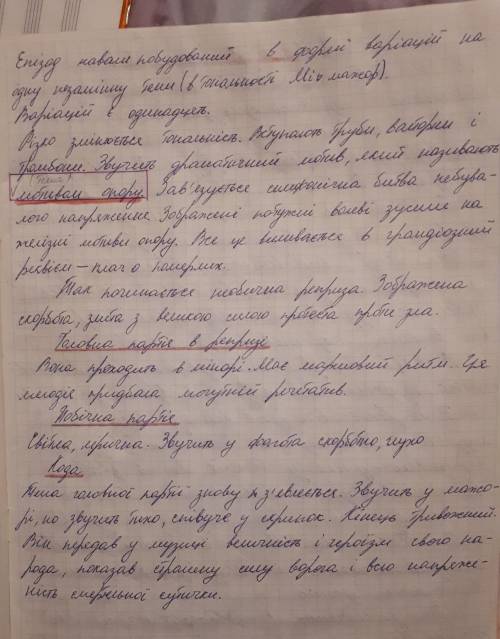 Епізод навали побудований в формі варіацій на
одну незмінну тему (в тональності Мі♭ мажор).
Варіацій є одинадцять.
Різко змінюється тональність. Вступають труби, валторни і
тромбони. Звучить драматичний мотив, який називають
(темою)
мотивом опору. Зав'язується симфонічна битва небува-
лого напруження. Зображені потужні волеві зусилля на
желізні мотиви опору. Все це виливається в грандіозний
реквієм – плач о померлих.
Так починається необична реприза. Зображена
скорбота, злита з великою силою протеста проти зла.
Головна партія в репризе
Вона проходить в мінорі. Має маршовий ритм. Ця
мелодія придбала могутній речетатив.
Побічна партія
Світла, лірична. Звучить у фагота скорботно, глухо
Кода
Тема головної партії знову з'являється. Звучить у мажо-
рі, но звучить тихо, співуче у скрипок. Кінець тривожний.
Він передав у музиці величність і героїзм свого на-
рода, показав страшну силу ворога і всю напруже-
ність смертельної сутички.